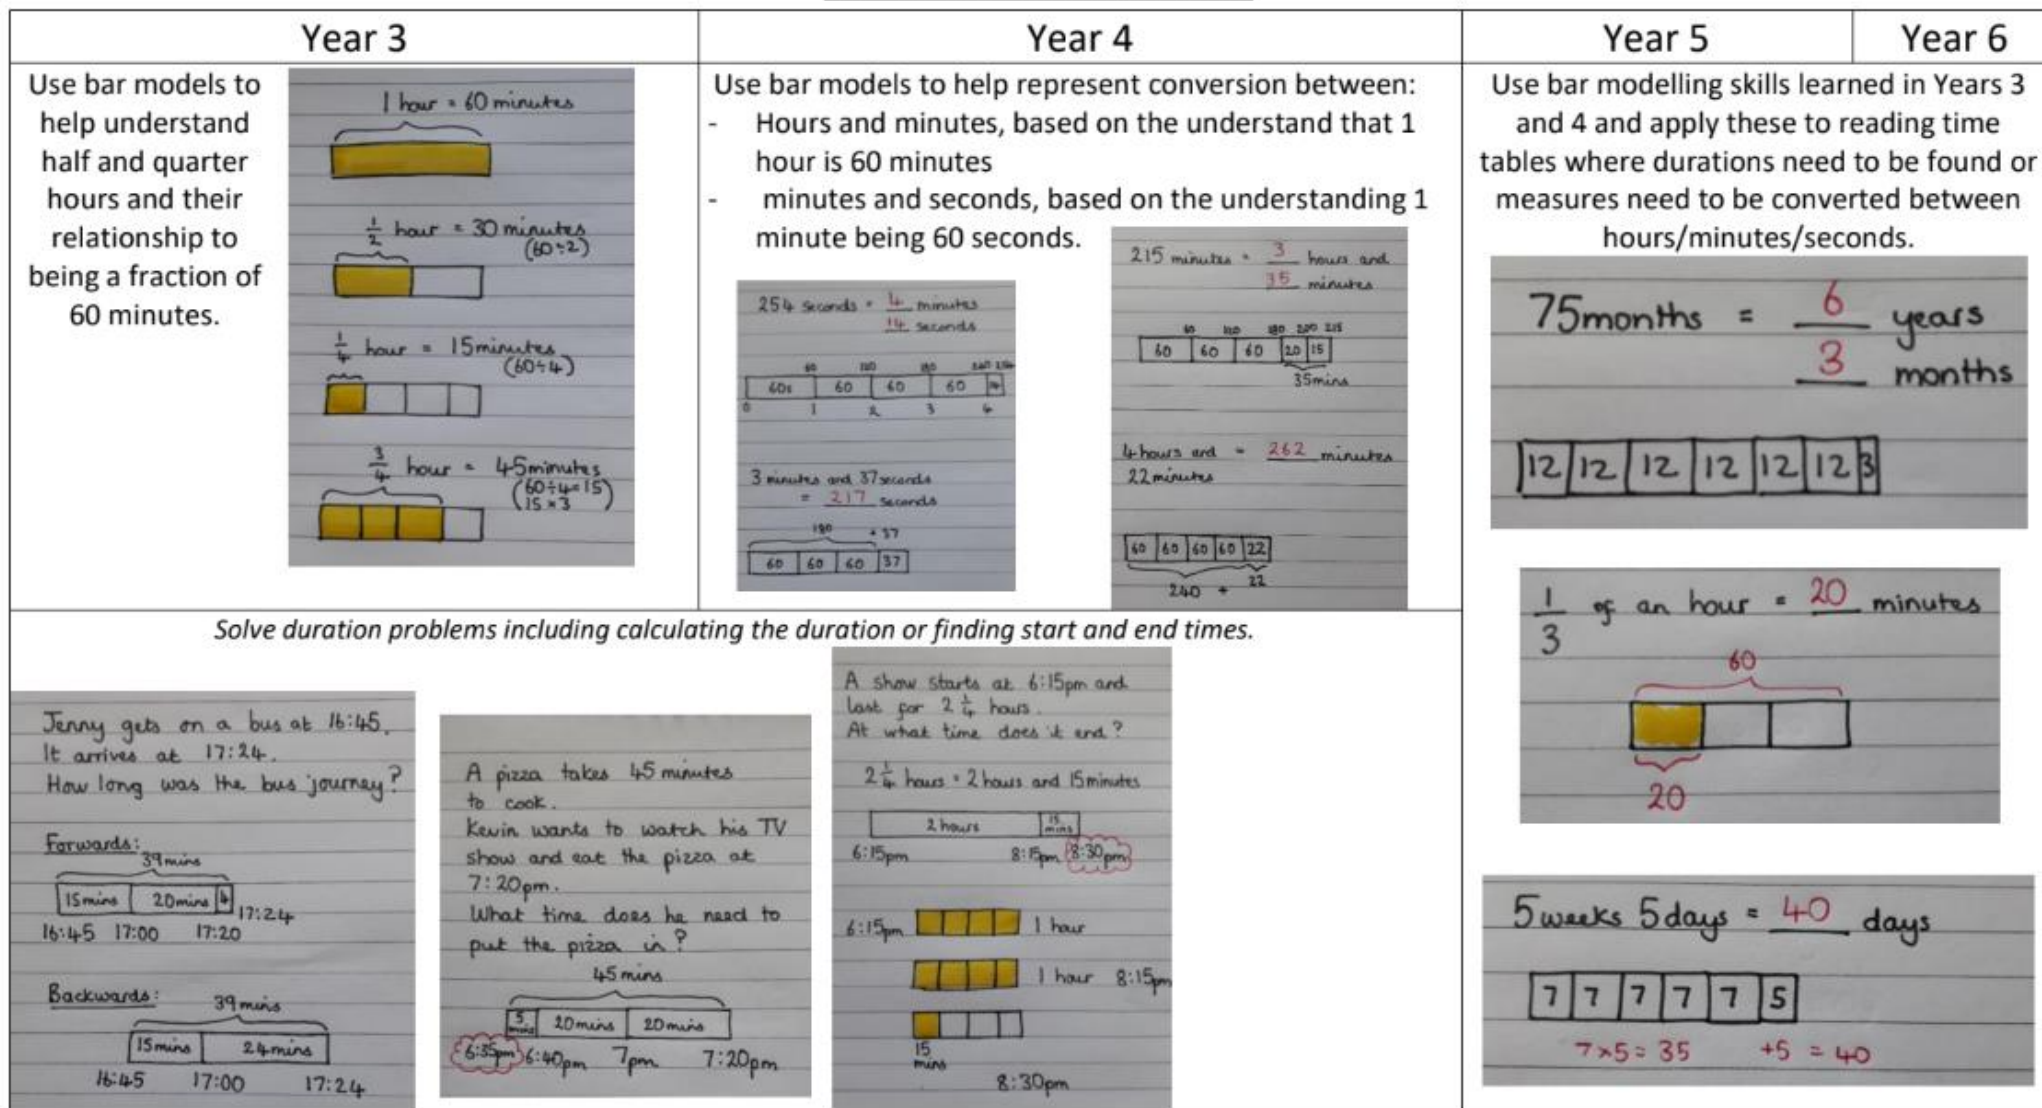 Year 3
Year 4
Year 5
Year 6
Use bar models to
help understand
half and quarter
hours and their
relationship to
being a fraction of
60 minutes.
1 hour = 60 minutes
1/2 hour = 30 minutes
(60÷2)
1/4 hour = 15 minutes
(60÷4)
3/4 hour = 45 minutes
(60÷4=15)
(15×3)
Use bar models to help represent conversion between:
- Hours and minutes, based on the understand that 1
hour is 60 minutes
- minutes and seconds, based on the understanding 1
minute being 60 seconds.
254 seconds = 4 minutes
14 seconds
60 120 180 240 254
60s 60 60 60 14
0 1 2 3 4
3 minutes and 37 seconds
= 217 seconds
180 + 37
60 60 60 37
215 minutes = 3 hours and
35 minutes
60 120 180 200 215
60 60 60 20 15
35mins
4 hours and = 262 minutes
22 minutes
60 60 60 60 22
240 + 22
Use bar modelling skills learned in Years 3
and 4 and apply these to reading time
tables where durations need to be found or
measures need to be converted between
hours/minutes/seconds.
75months = 6 years
3 months
12 12 12 12 12 12 3
1/3 of an hour = 20 minutes
60
20
5 weeks 5 days = 40 days
7 7 7 7 7 5
7×5=35 +5 = 40
Solve duration problems including calculating the duration or finding start and end times.
Jenny gets on a bus at 16:45.
It arrives at 17:24.
How long was the bus journey?
Forwards:
39mins
15mins 20mins 4
16:45 17:00 17:20 17:24
Backwards:
39mins
15mins 24mins
16:45 17:00 17:24
A pizza takes 45 minutes
to cook.
Kevin wants to watch his TV
show and eat the pizza at
7:20pm.
What time does he need to
put the pizza in?
45mins
5 mins 20mins 20mins
6:35pm 6:40pm 7pm 7:20pm
A show starts at 6:15pm and
last for 2 1/4 hours.
At what time does it end?
2 1/4 hours = 2 hours and 15 minutes
2 hours 15 mins
6:15pm 8:15pm 8:30pm
6:15pm 1 hour
1 hour 8:15pm
15
mins
8:30pm